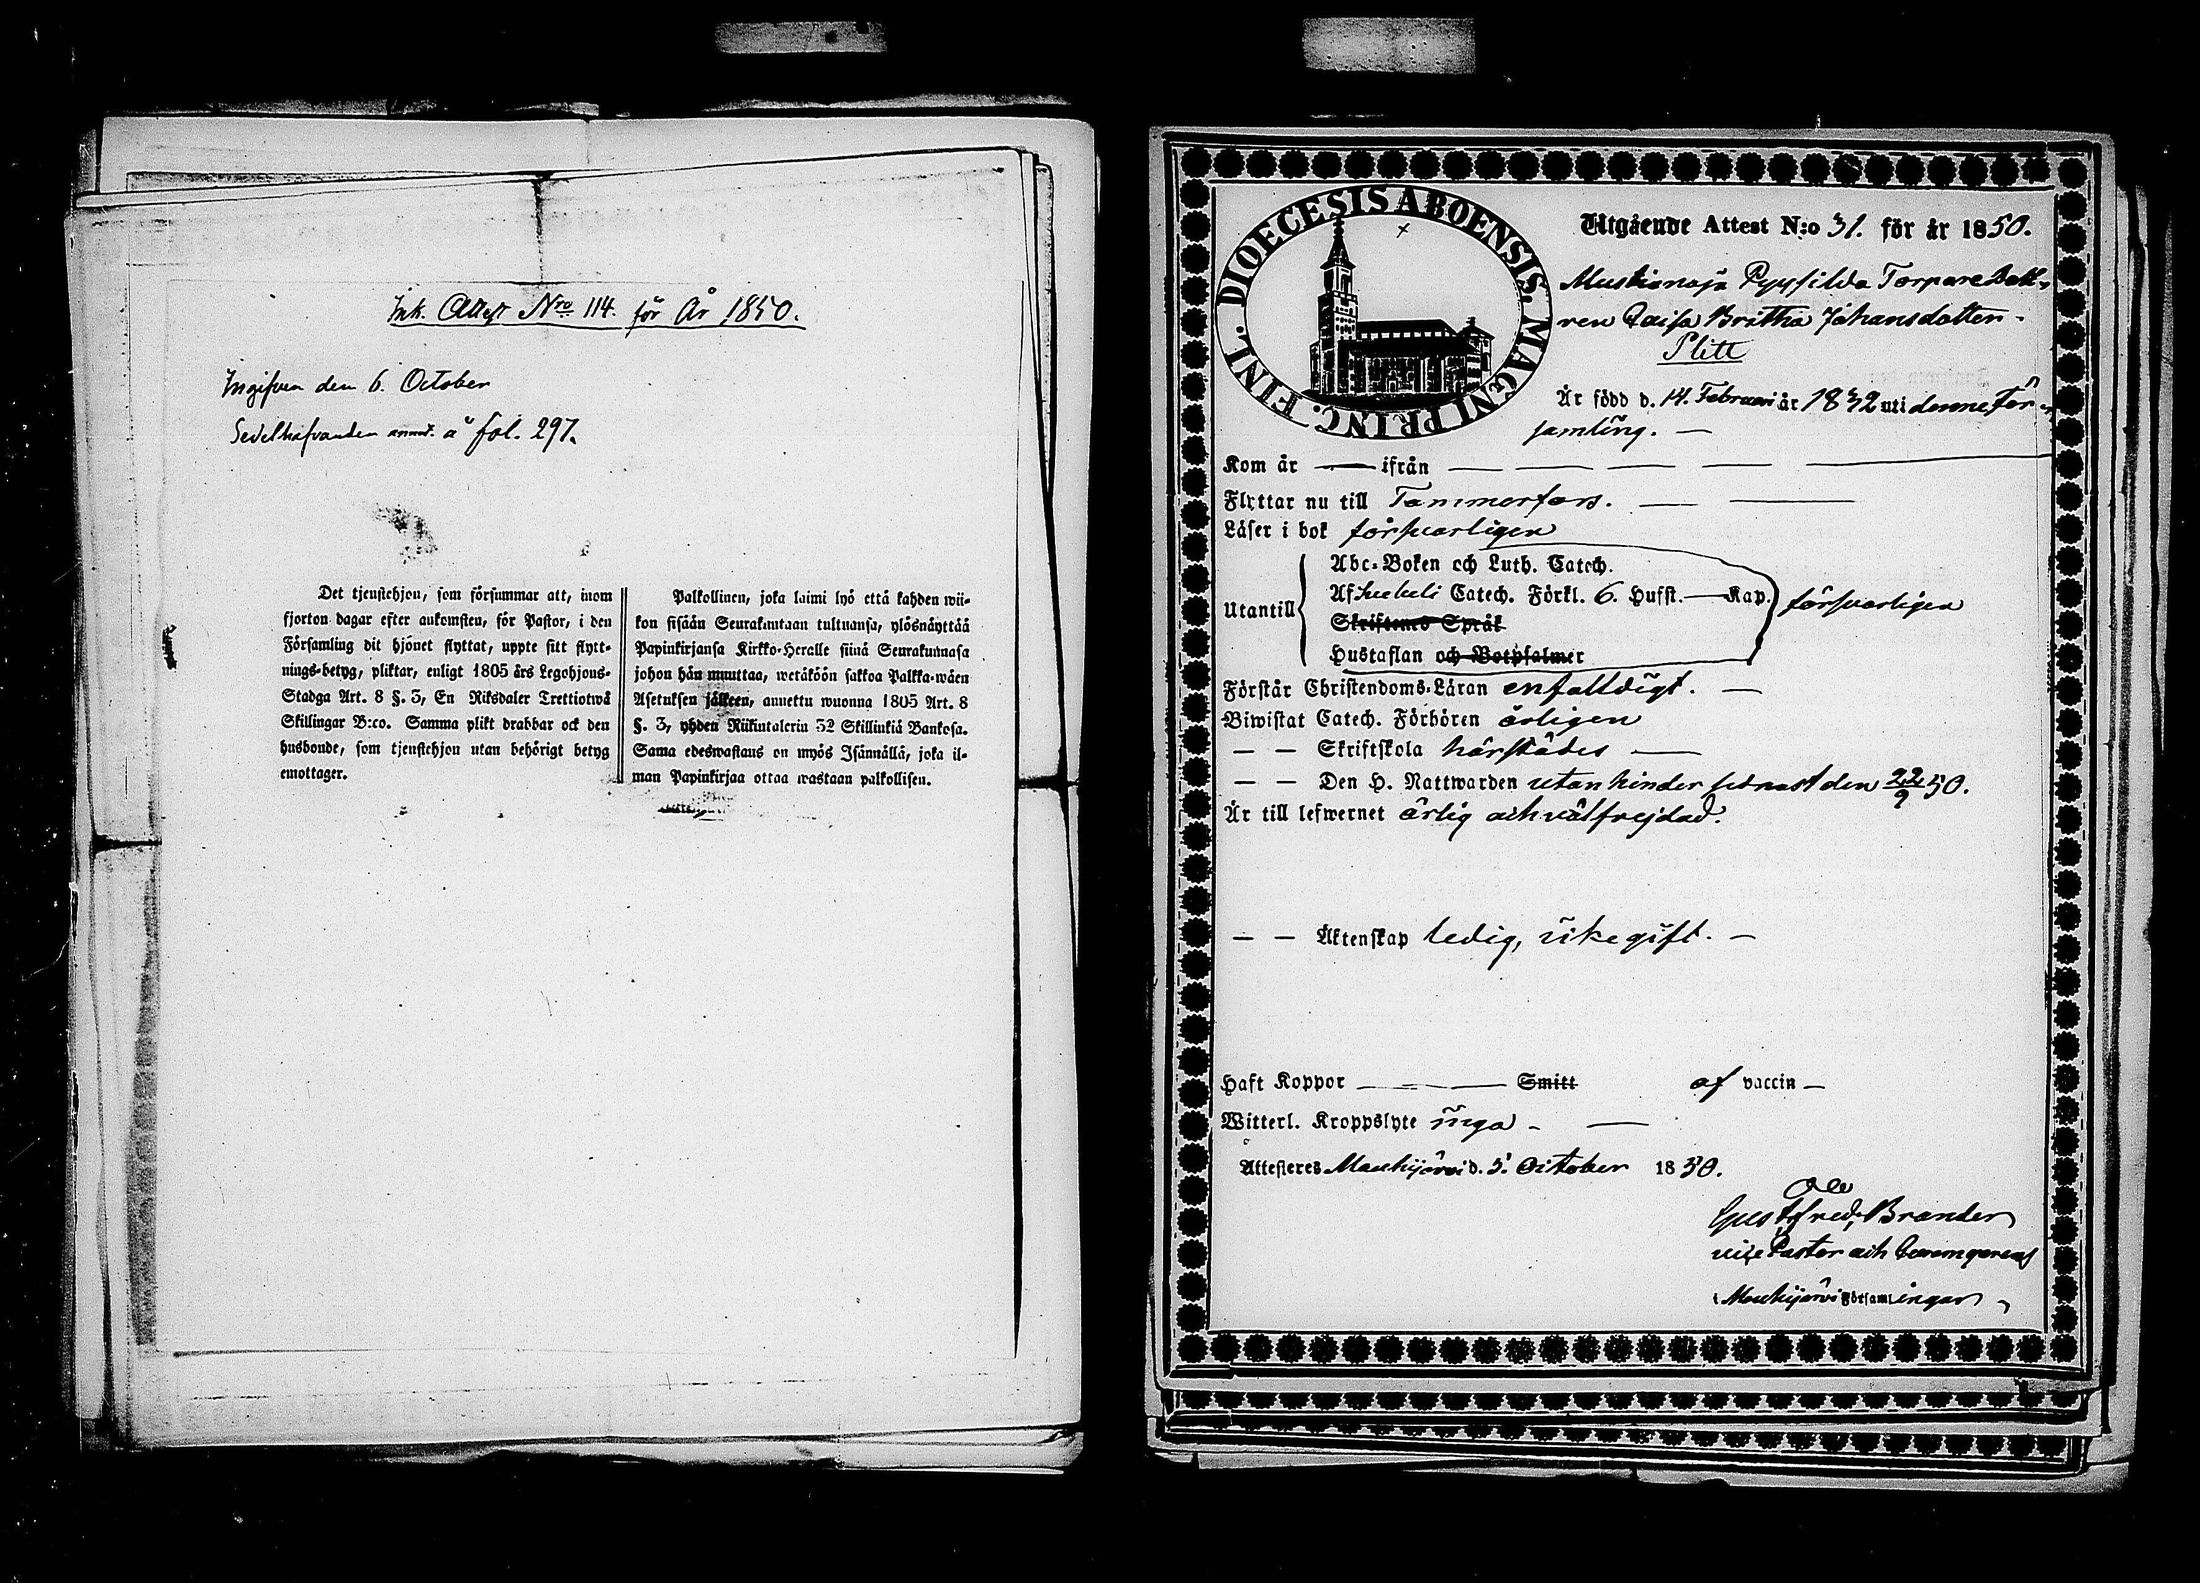 Ink. Attest Nro 114. för År 1850.
Ingifven den 6. October
Sedelhafvanden annot. å fol. 297.
Det tjenstehjon, som försummar att, inom
fjorton dagar efter ankomsten, för Pastor, i den
Församling dit hjonet flyttat, uppte sitt flytt-
nings-betyg, pliktar, enligt 1805 års Legohjons-
Stadga Art. 8 §. 3, En Riksdaler Trettiotwå
Skillingar B:co. Samma plikt drabbar ock den
husbonde, som tjenstehjon utan behörigt betyg
emottager.
Palkollinen, joka laimi lyö että kahden wii-
kon sisään Seurakuntaan tultuansa, ylösnäyttää
Papinkirjansa Kirkko-Heralle siinä Seurakunnasa
johon hän muuttaa, wetäköön sakkoa Palkka-wäen
Asetuksen jälkeen, annettu wuonna 1805 Art. 8
§. 3, yhden Riikintalerin 32 Skillinkiä Bankosa.
Sama edeswastaus on myös Isännällä, joka il-
man Papinkirjaa ottaa wastaan palkollisen.
DIOECESIS ABOENSIS. MAGNI PRINC. FINL.
Utgående Attest N:o 31. för år 1850.
Mustianoja Pyysilda Torpare Dott-
ren Caisa Britha Johansdotter
Plitt
Är född d. 14. Februari år 1832 uti denne För-
samling.
Kom år — ifrån —
Flyttar nu till Tammerfors.
Läser i bok försvarligen
Utantill
Abc-Boken och Luth. Catech.
Af Svebeli Catech. Förkl. 6. Hufst. — Kap.
Skriftenes Språk
Hustaflan och Botpsalmer
försvarligen
Förstår Christendoms-Läran enfalldigt.
Biwistat Catech. Förhören årligen
— — Skriftskola härstädes
— — Den H. Nattwarden utan hinder sednast den 22/9 50.
Är till lefwernet ärlig och välfrejdad.
— — Äktenskap ledig, icke gift.
Haft Koppor — Smitt af vaccin
Witterl. Kroppslyte inga
Attesteras Mouhijärvi d. 5. October 1850.
Gust. Alfred Brander
vice Pastor och
Mouhijärvi Församlingar